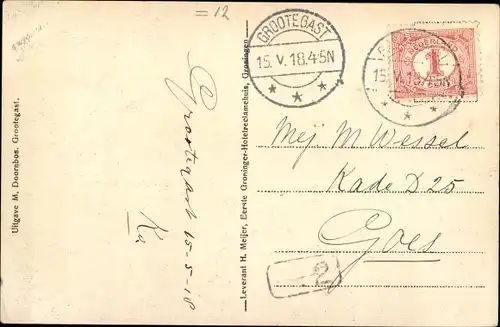 = 12
GROOTEGAST
15.V.18.4-5N
NEDERLAND
1
CENT
15.V.18.4-5N
Mej. M Wessel
Kade D 25
Goes
Grootegast 15-5-18
Ka
Leverant H. Meijer, Eerste Groninger-Hotelreclamehuis, Groningen
Uitgave M. Doornbos, Grootegast.